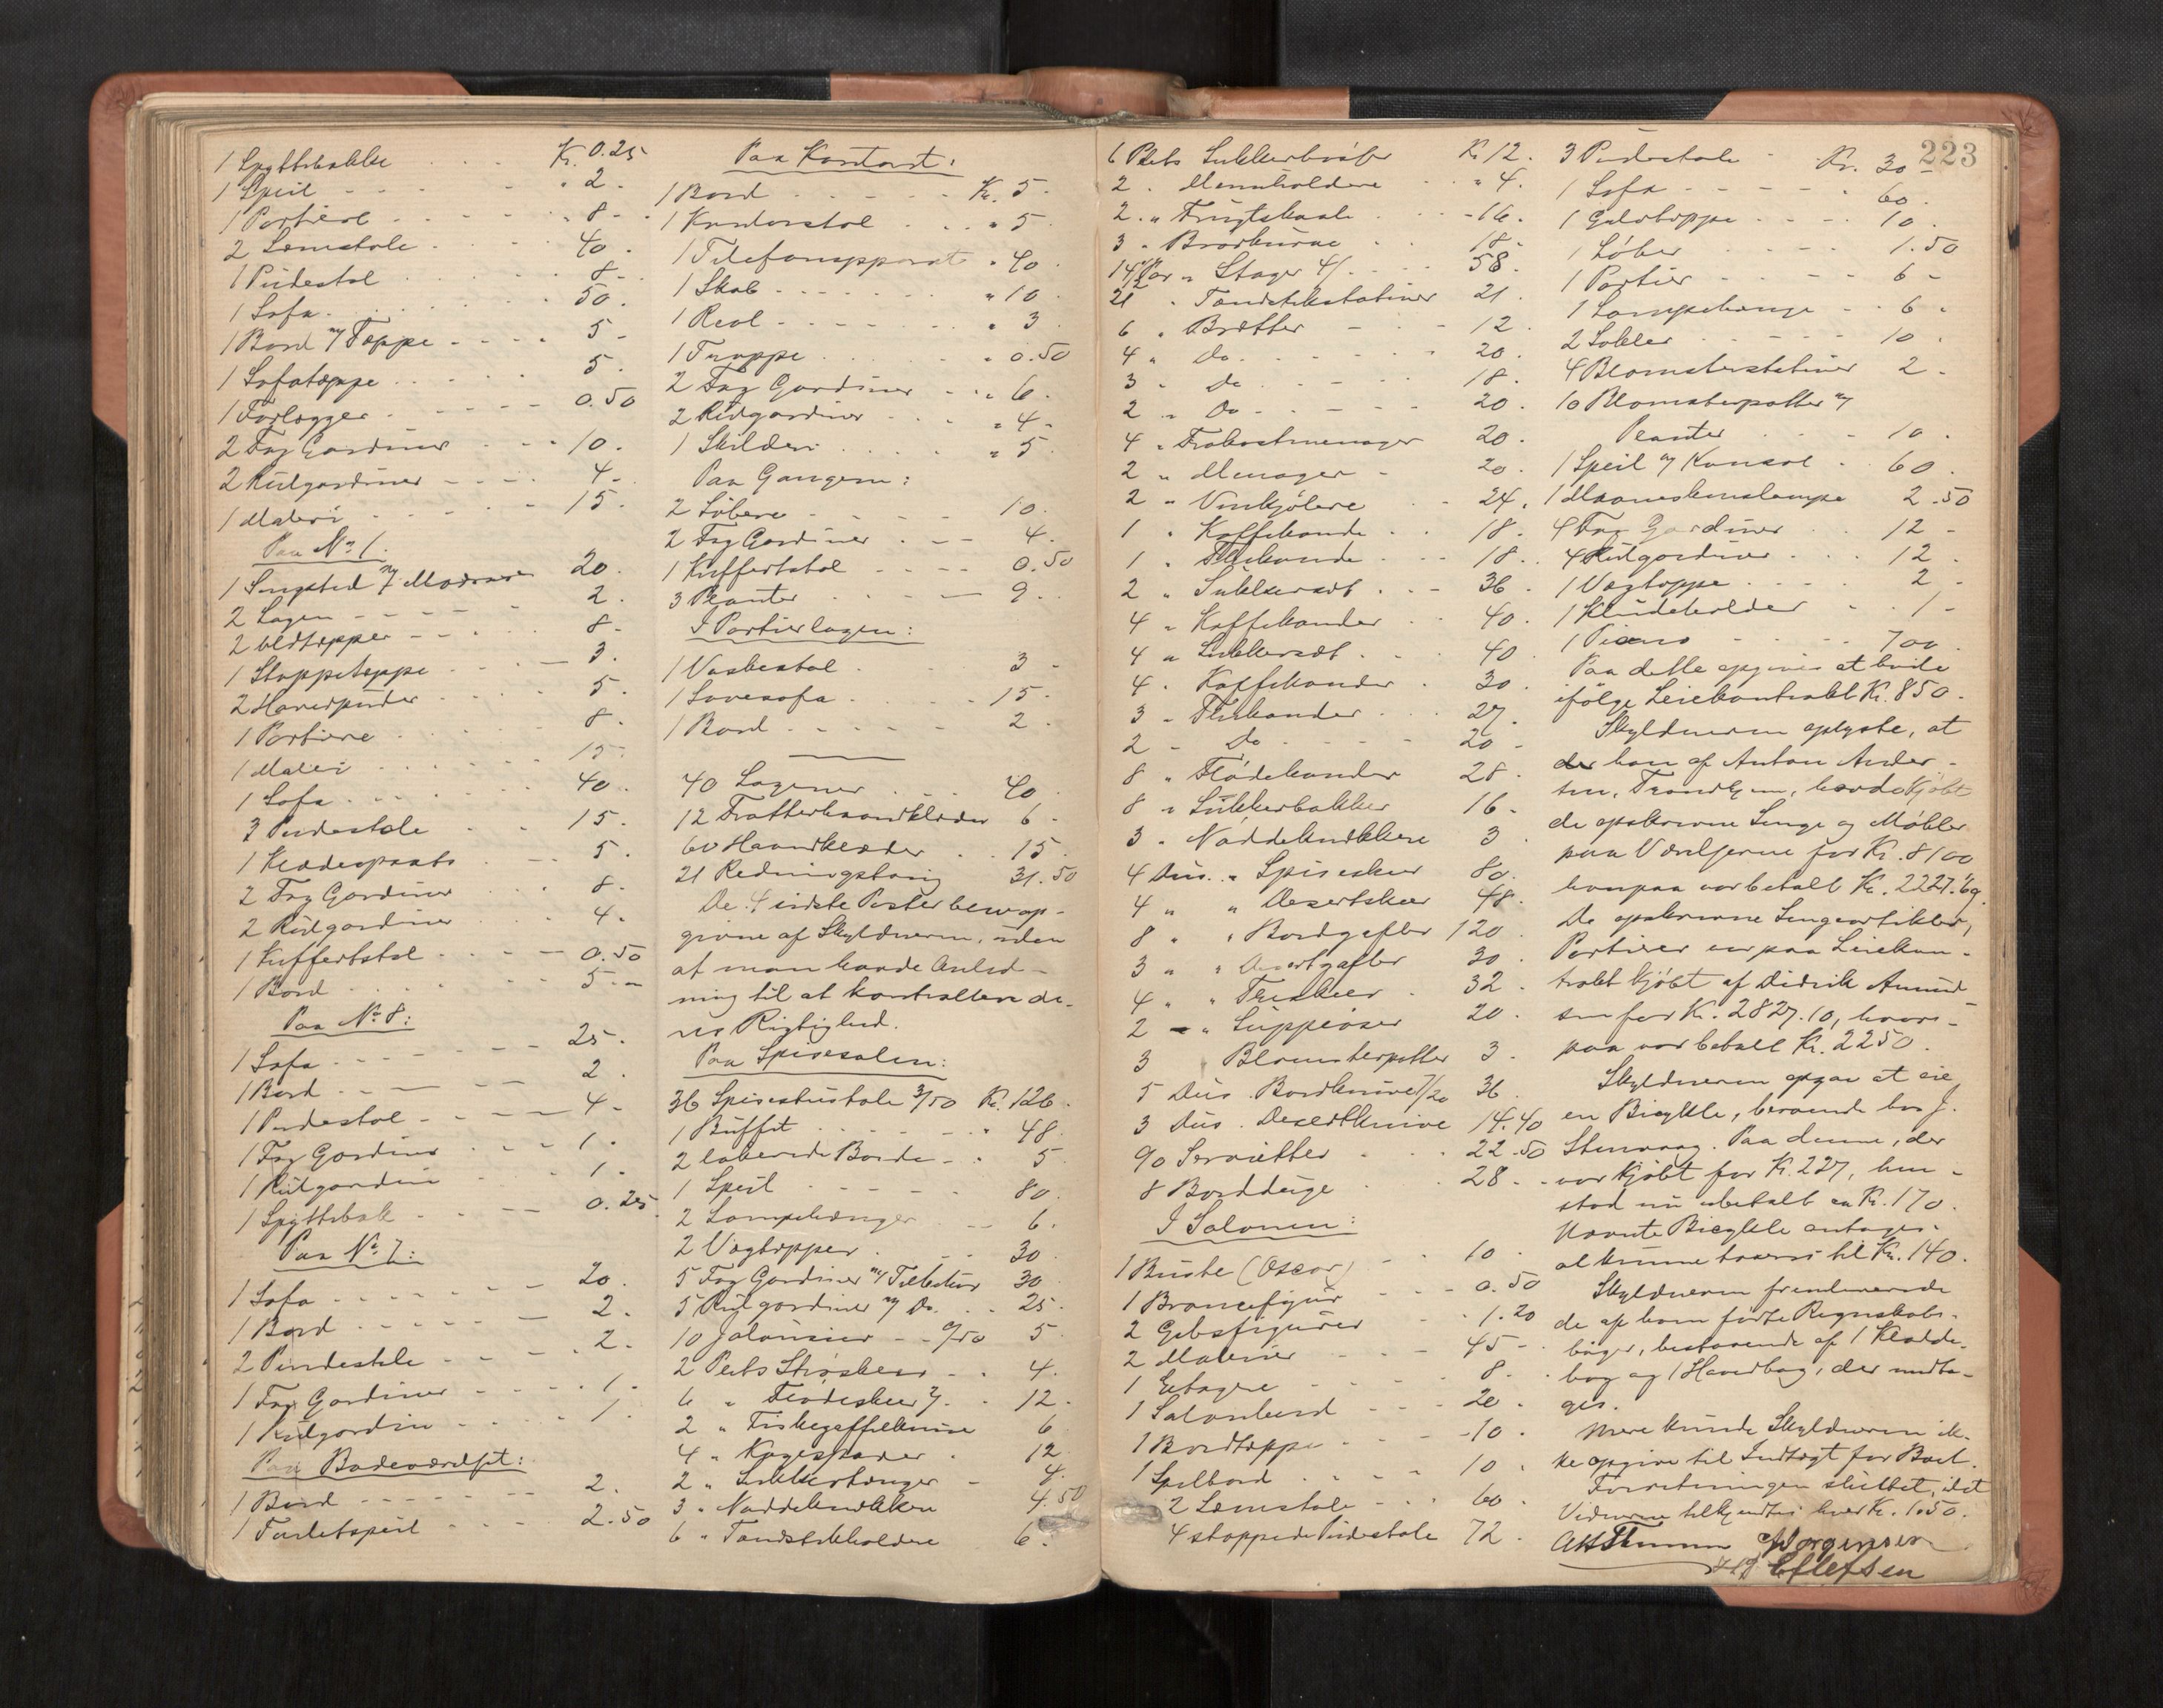 1 Spyttebakke . . . Kr. 0.25
1 Speil - - - - " 2.
1 Portiere - - - - " 8.
2 Lænestole . - - - 40.
1 Pindestol - - - 8.
1 Sofa . - - - 50.
1 Bord m/ Teppe - - - - 5.
1 Sofateppe . . - - 5.
1 Forlegger - - - - 0.50
2 Fag Gardiner - - - 10.
2 Rulgardiner - - - 4.
1 Maleri - - - - 15.
Paa No 1.
1 Sengsted m/ Madrasser 20.
2 Lagen - - - - 2.
2 Uldtepper - - - 8.
1 Stoppeteppe - - - 3.
2 Hovedpuder - - - 5.
1 Portiere - - - 8.
1 Maleri - - - 15.
1 Sofa . - - - 40.
3 Pindestole - - 15.
1 Klædesprads - - - 5.
2 Fag Gardiner - - - 8.
2 Rulgardiner - - - 4.
1 Kuffertstol - - - 0.50
1 Bord - - - - 5.
Paa No 8:
1 Sofa - - - - 25.
1 Bord - - - - 2.
1 Pindestol - - - - 4.
1 Fag Gardiner - - - 1.
1 Rulgardin - - - 1.
1 Spyttebak - - - 0.25
Paa No 7:
1 Sofa - - - - 20.
1 Bord - - - - 2.
2 Pindestole - - - 2.
1 Fag Gardiner - - - 1.
1 Rulgardin - - - 1.
Paa Badeværelset:
1 Bord - - - - 2.
1 Toiletspeil - - - 2.50
Paa Kontoret:
1 Bord . - - - Kr. 5.
1 Kontorstol . . . " 5.
1 Telefonapparat " 40.
1 Skab - - - - " 10.
1 Reol - - - - " 3.
1 Trappe . - - - " 0.50
2 Fag Gardiner - - " 6.
2 Rulgardiner - - " 4.
1 Skilderi . . . . " 5.
Paa Gangen:
2 Løbere - - - 10.
2 Fag Gardiner . - - 4.
1 Kuffertstol - - - - 0.50
3 Planter - - - - 9.
I Portierlogen:
1 Vaskestol . - - 3.
1 Sovesofa . - - - 15.
1 Bord - - - - 2.
40 Lagener . . . 40.
12 Frotterhaandklæder 6.
60 Haandklæder . . 15.
21 Redningstoug 31.50
De 4 sidste Poster blev op-
givne af Skyldneren, uden
at man havde Anled-
ning til at kontrollere de-
res Rigtighed.
Paa Spisesalen:
36 Spisestuestole 3/50 Kr. 126.
1 Buffet - - - " 48.
2 laberede Borde - . 5.
1 Speil - - - - 80.
2 Lampehænger - - 6.
2 Vægtepper . - - 30.
5 Fag Gardiner m/ Tilbehør 30.
5 Rulgardiner m/ Do. . . 25.
10 Jalousier - - 0/50 5.
2 Plets Strøskeer - . 4.
6 " Flødeskeer 2/. . 12.
2 " Fiskegaffelknive 6.
4 " Kagespader . 12
2 " Sukkertænger - 4.
3 " Nøddeknækkere 4.50
6 " Tandstikholdere 6.
6 Plets Sukkerbøsser Kr 12.
2 " Menuholdere " 4.
2 " Frugtskaale . . - 16.
3 " Brødkurve . . 18.
14 1/2 Par " Stager 4/. . . 58.
21 " Tandstikstativer 21.
6 " Brætter - - 12.
4 " Do. . . . . 20.
3 " Do . - - - 18.
2 " Do - - - - 20.
4 " Frokostmenager 20.
2 " Menager - 20.
2 " Vinkjølere 24.
1 " Kaffekande . . 18.
1 " Thekande . . 18.
2 " Sukkersæt . . 36.
4 " Kaffekander . . 40.
4 " Sukkersæt . . 40
4 " Kaffekander . 30.
3 " Thekander . . 27.
2 " Do - - - 20.
8 " Flødekander . 28.
8 " Sukkerbakker 16.
3 " Nøddeknækkere 3.
4 Dus. " Spiseskeer 80.
4 " " Desertskeer 48.
8 " " Bordgafler 120.
3 " " Desertgafler 30.
4 " " Theskeer . 32.
2 " Suppeøser 20.
3 Blomsterpotter 3.
5 Dus. Bordknive 7/20 36.
3 Dus. Desertknive 14.40
90 Servietter . . . 22.50
8 Bordduge . . 28.
I Salonen:
1 Buste (Oscar) - - 10.
1 Broncefigur - - - 0.50
2 Gibsfigurer . . 1.20
2 Malerier - - - 45.
1 Etagere - - - 8.
1 Salonbord - - - 20.
1 Bordteppe - - - 10.
1 Spilbord . . . . 10.
2 Lænestole - - . 60.
4 stoppede Pindestole 72.
223
3 Pidestale - Kr. 30
1 Sofa - - - - 60.
1 Gulvteppe - - - 10.
1 Løber - - - 1.50
1 Portier - - - - 6.
1 Lampehænge . . 6.
2 Sokler - - - - 10.
4 Blomsterstativer 2.
10 Blomsterpotter m/
Planter . . . 10.
1 Speil m/ Konsol . 60.
1 Maaneskinslampe 2.50
4 Fag Gardiner . 12.
4 Rulgardiner . . . 12.
1 Vægteppe . . . . 2.
1 Kludeholder . . 1.
1 Piano - - - - 700.
Paa dette opgives at hvile
ifølge Leiekontrakt Kr. 850.
Skyldneren oplyste, at
han af Anton Ander-
sen, Trondhjem, havde kjøbt
de opskrevne Senge og Møbler
paa Værelserne for Kr. 8100
hvorpaa var betalt Kr. 2227.69.
De opskrevne Sengeartikler,
Portierer er paa Leiekon-
trakt kjøbt af Didrik Amund-
sen for Kr. 2827.10, hvor-
paa var betalt Kr. 2250.
Skyldneren opgav at eie
en Bicykle, beroende hos J.
Stenvaag. Paa denne, der
var kjøbt for Kr. 227, hen-
stod nu ubetalt ca Kr. 170.
Nævnte Bicykle antages
at kunne taxeres til Kr. 140.
Skyldneren fremleverede
de af ham førte Regnskabs-
bøger, bestaaende af 1 Kladde-
bog og 1 Hovedbog, der modta-
ges.
Mere kunde Skyldneren ik-
ke opgive til Indtægt for Boet.
Forretningen sluttet, idet
Vidnerne tilkjendtes hver Kr. 1.50.
Jørgensen
Ellefsen